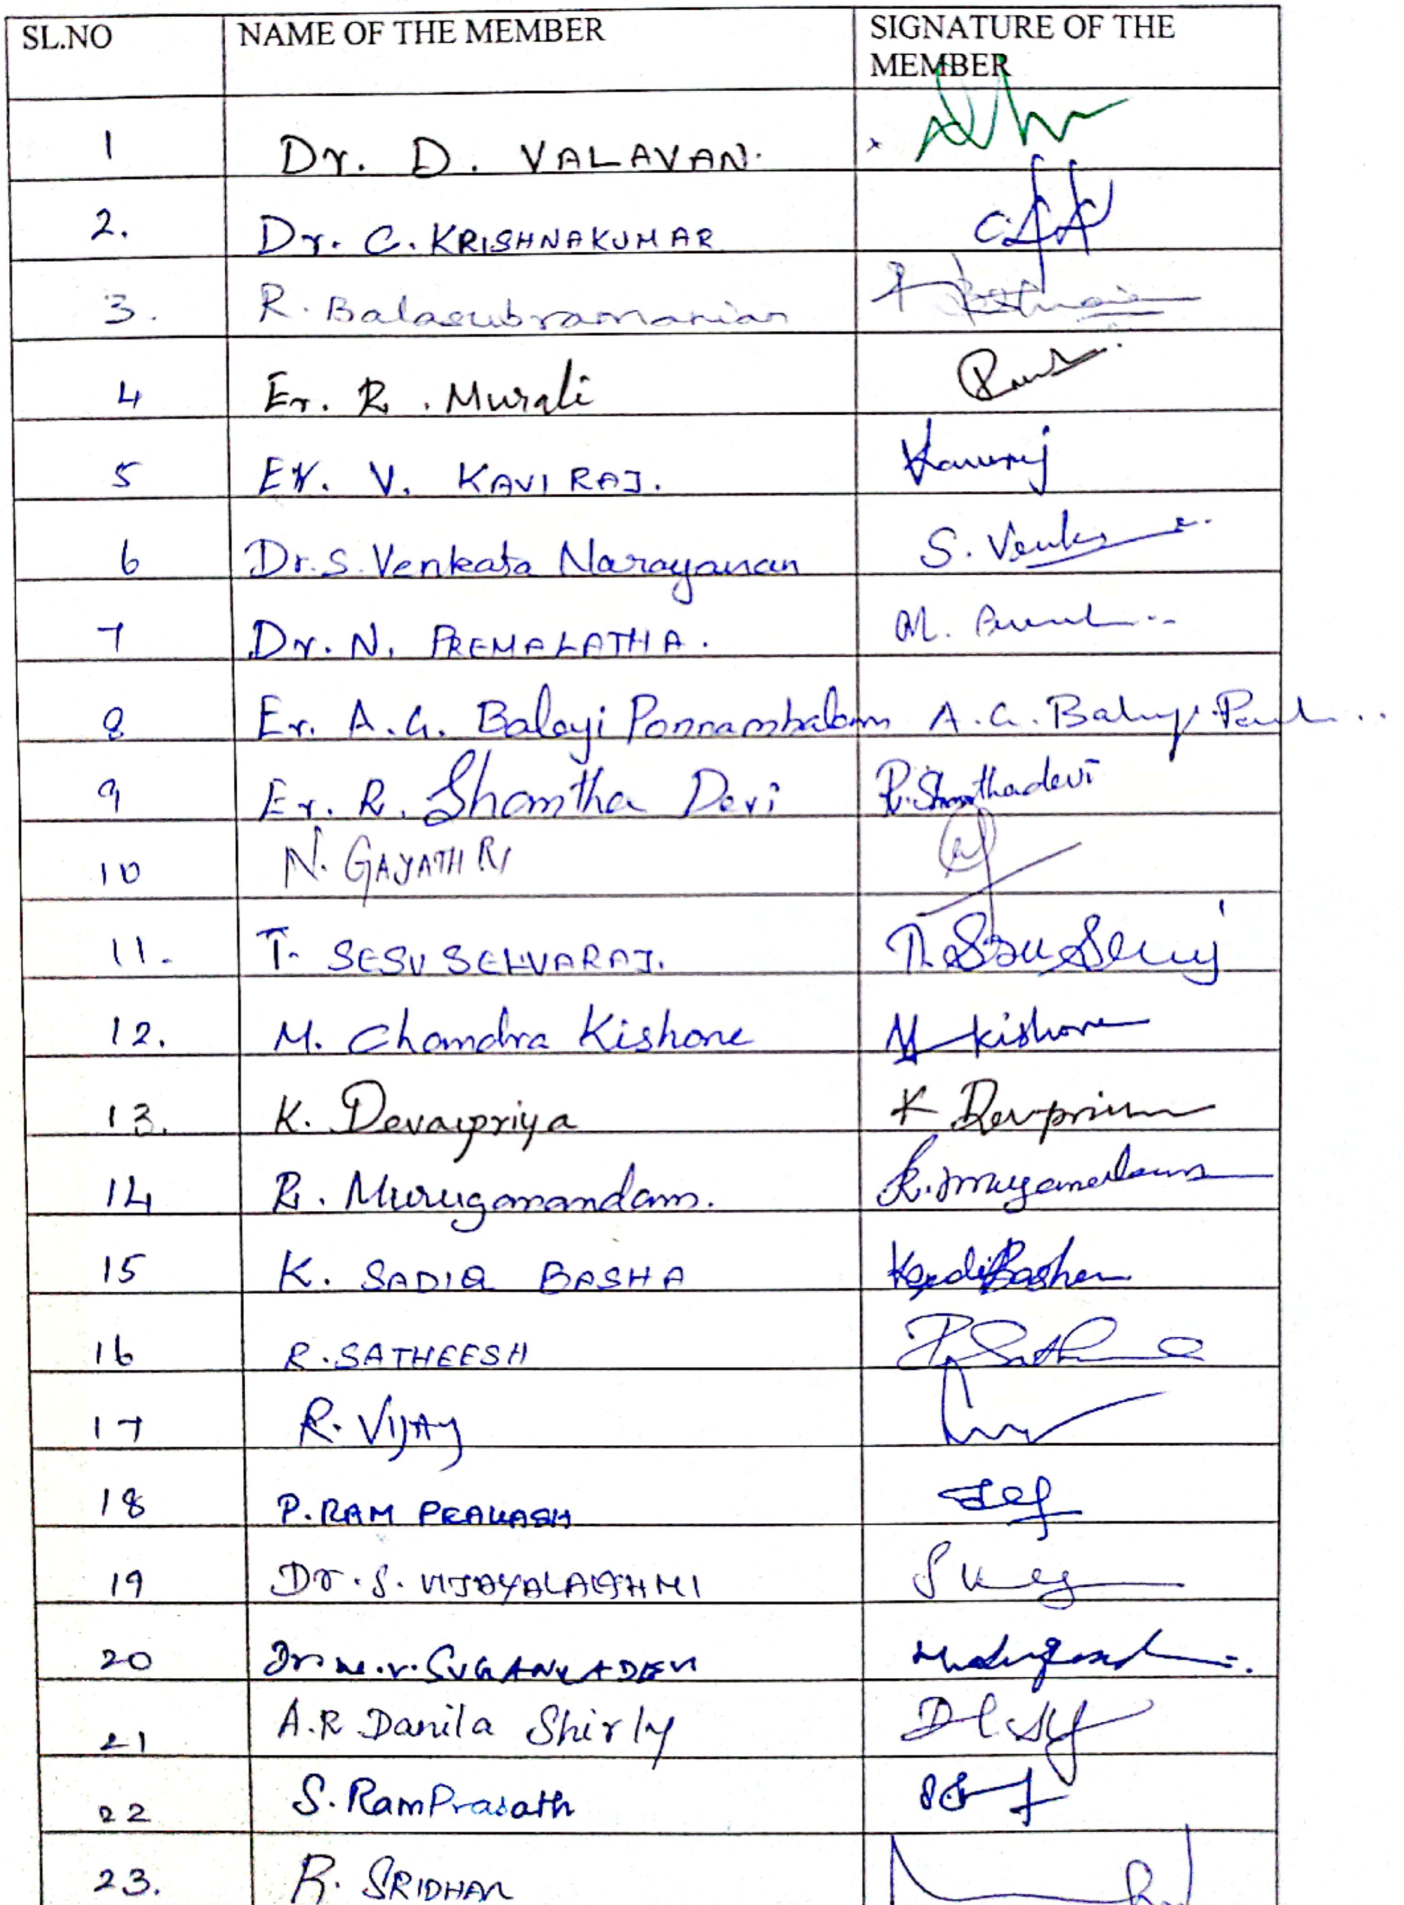 SL.NO NAME OF THE MEMBER SIGNATURE OF THE
MEMBER
1 Dr. D. VALAVAN.
2. Dr. C. KRISHNAKUMAR
3. R. Balasubramanian
4 Er. R. Murali
5 Er. V. KAVIRAJ. Kaviraj
6 Dr. S. Venkata Narayanan S. Venka
7 Dr. N. PREMALATHA.
8 Er. A.G. Balaji Ponnambalam A.G. Balaji
9 Er. R. Shantha Devi R. Shanthadevi
10 N. GAYATHRI
11. T. SESU SELVARAJ. T. Sesu Selvaraj
12. M. Chandra Kishore M Kishore
13. K. Devapriya K Devapriya
14 R. Muruganandam. R. Muruganandam
15 K. SADIQ BASHA
16 R. SATHEESH
17 R. VIJAY
18 P. RAM PRAKASH
19 Dr. S. VIJAYALAKSHMI
20 SUGANYADEVI
21 A.R Danila Shirly
22 S. RamPrasath
23. R. SRIDHAR